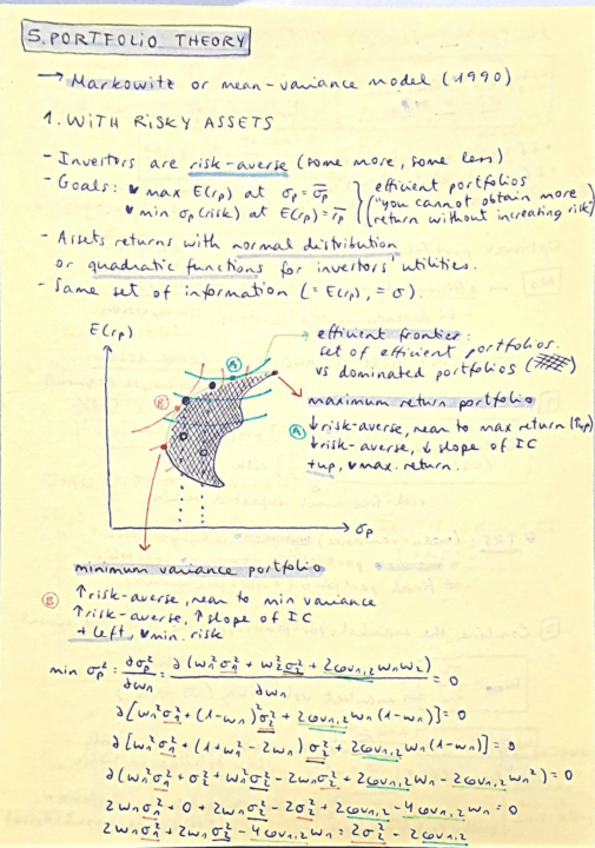 5. PORTFOLIO THEORY
→ Markowitz or mean-variance model (1990)
1. WITH RISKY ASSETS
- Investors are risk-averse (some more, some less)
- Goals: • max E(rp) at σp = σ̄p } efficient portfolios
• min σp (risk) at E(rp) = r̄p "you cannot obtain more
return without increasing risk"
- Assets returns with normal distribution
or quadratic functions for investors' utilities.
- Same set of information (= E(rp), = σ).
E(rp)
efficient frontier:
set of efficient portfolios.
vs dominated portfolios ( )
maximum return portfolio
A
A ↓risk-averse, near to max return (↑up)
↓risk-averse, ↓ slope of IC
+up, max. return.
B
σp
minimum variance portfolio
B ↑risk-averse, near to min variance
↑risk-averse, ↑ slope of IC
+ left, min. risk
min σp² = ∂σp²/∂w1 = ∂(w1²σ1² + w2²σ2² + 2cov1,2w1w2)/∂w1 = 0
∂[w1²σ1² + (1-w1)²σ2² + 2cov1,2w1(1-w1)] = 0
∂[w1²σ1² + (1+w1²-2w1)σ2² + 2cov1,2w1(1-w1)] = 0
∂(w1²σ1² + σ2² + w1²σ2² - 2w1σ2² + 2cov1,2w1 - 2cov1,2w1²) = 0
2w1σ1² + 0 + 2w1σ2² - 2σ2² + 2cov1,2 - 4cov1,2w1 = 0
2w1σ1² + 2w1σ2² - 4cov1,2w1 = 2σ2² - 2cov1,2